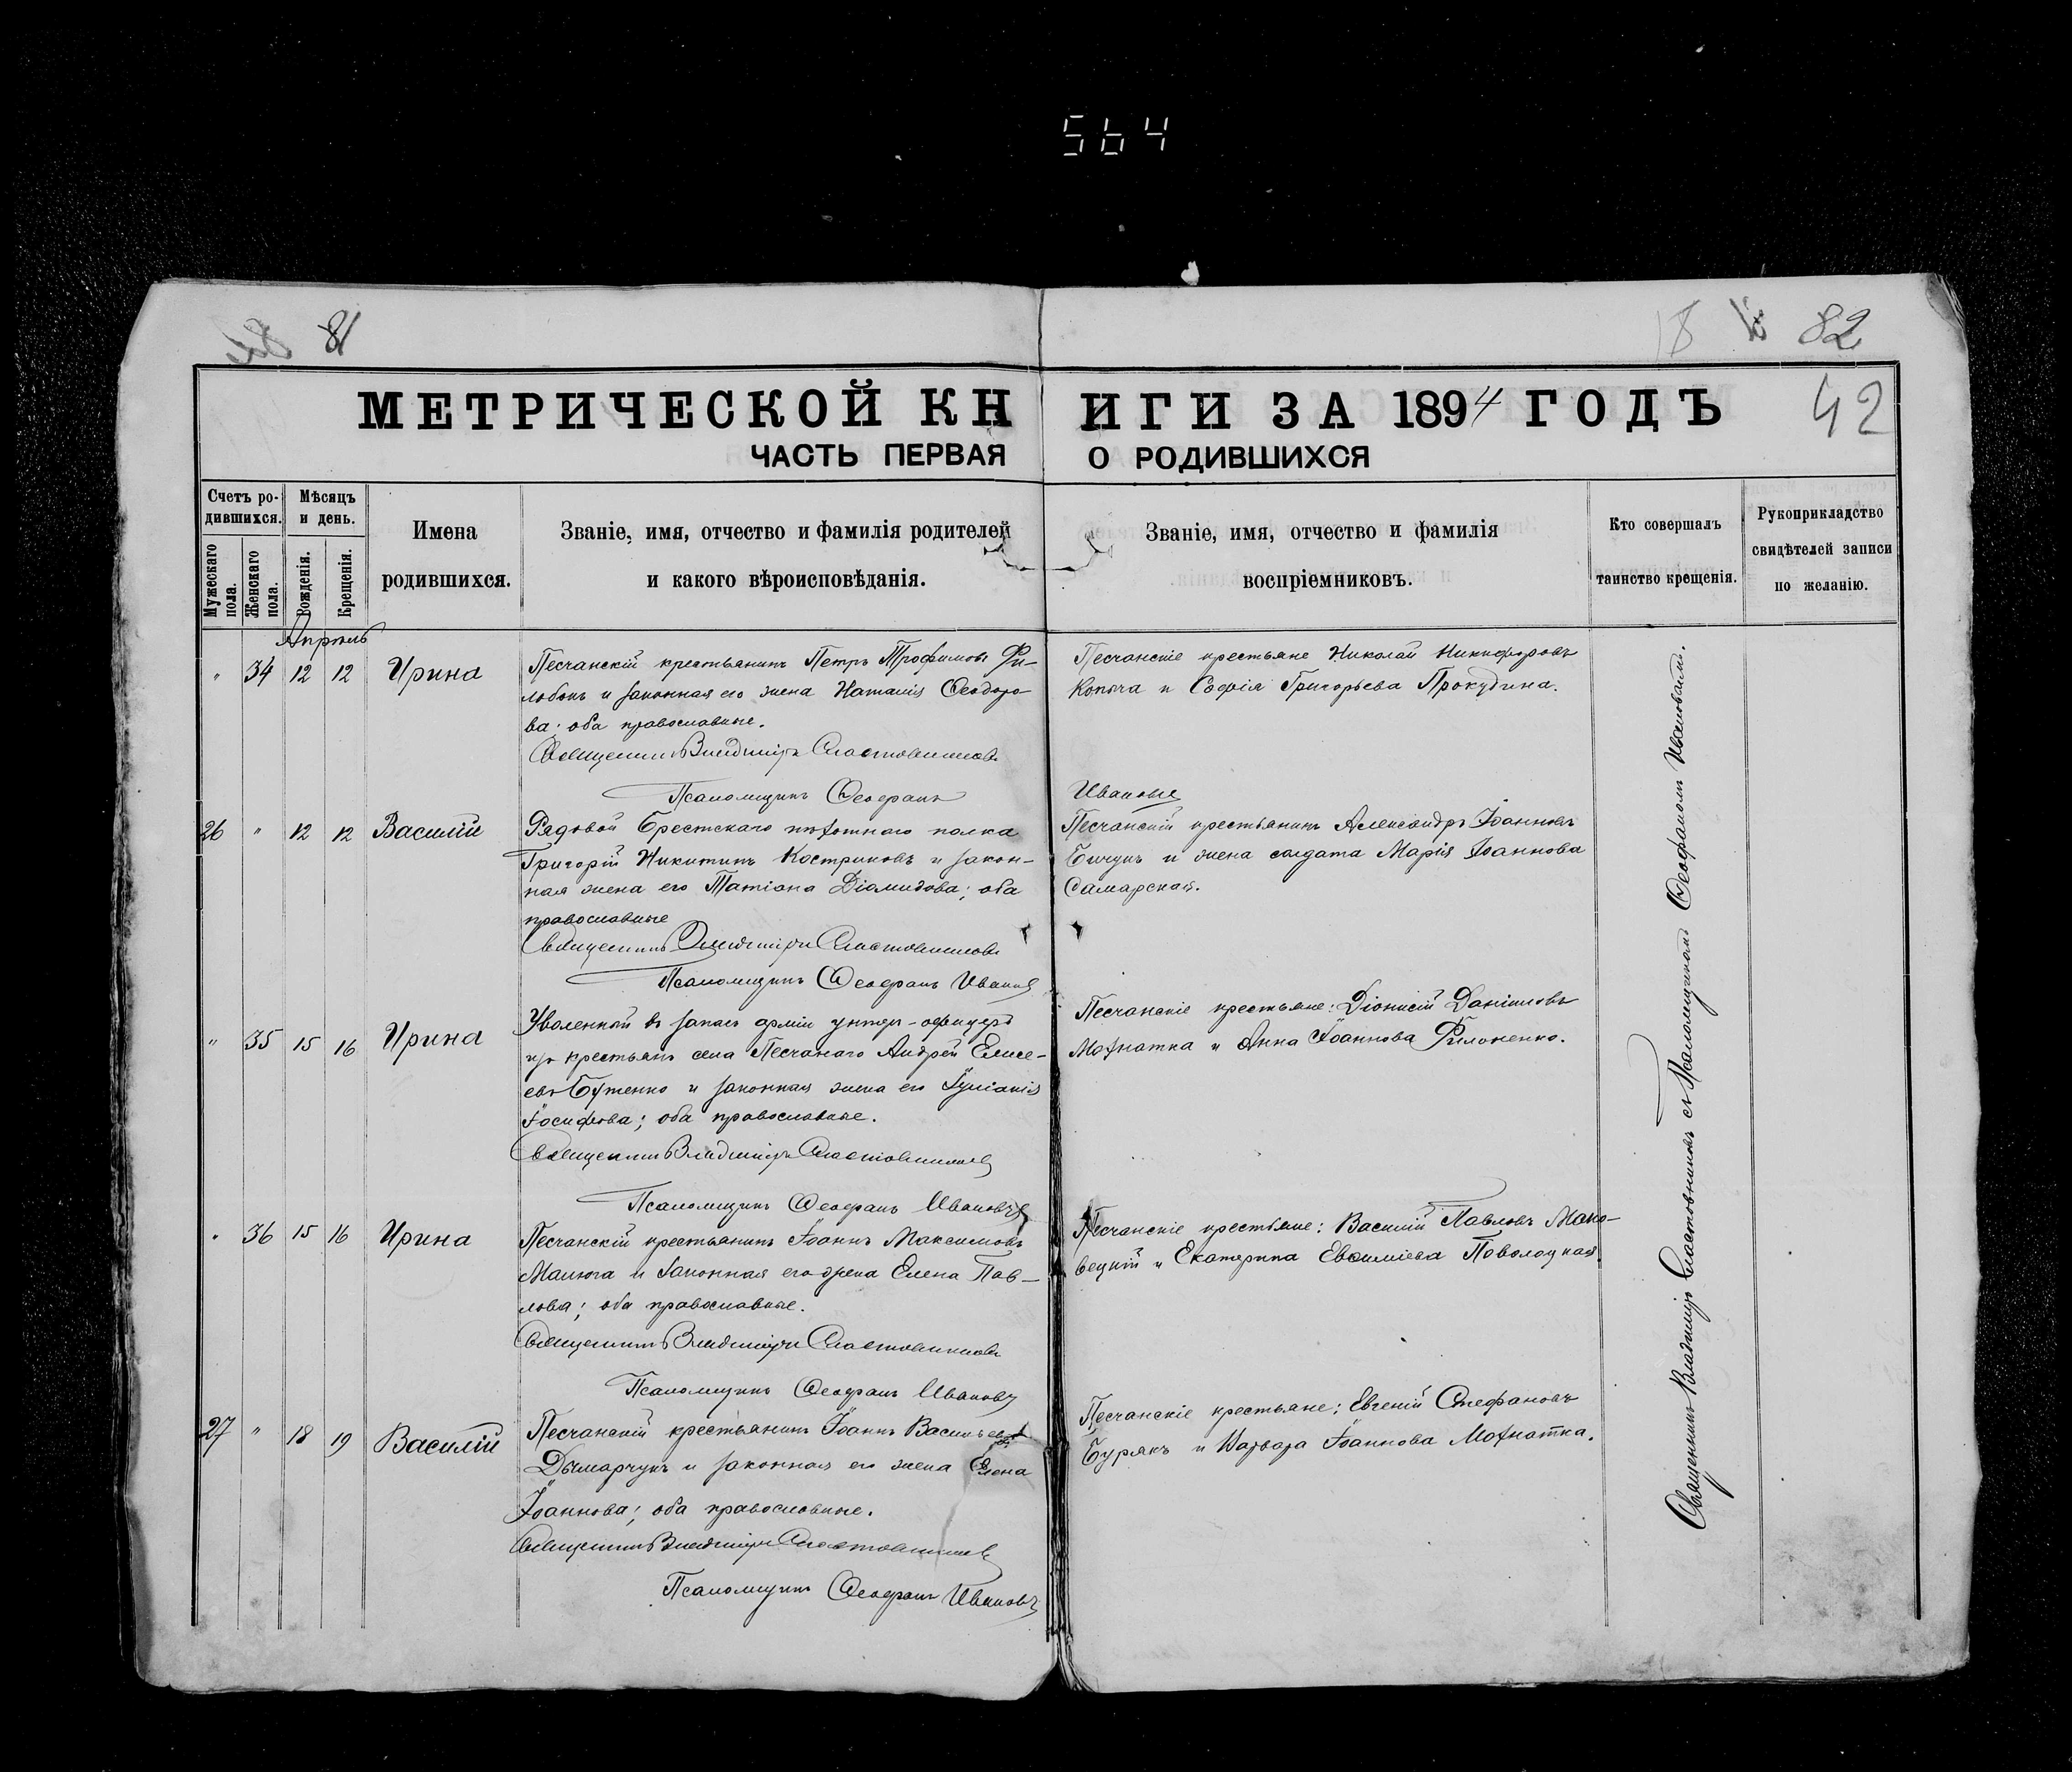 564
81
18 82
МЕТРИЧЕСКОЙ КНИГИ ЗА 1894 ГОДЪ
42
ЧАСТЬ ПЕРВАЯ О РОДИВШИХСЯ
Счетъ ро-
дившихся.
Мужескаго пола.
Женскаго пола.
Мѣсяцъ
и день.
Рожденія.
Крещенія.
Имена
родившихся.
Званіе, имя, отчество и фамилія родителей
и какого вѣроисповѣданія.
Званіе, имя, отчество и фамилія
воспріемниковъ.
Кто совершалъ
таинство крещенія.
Рукоприкладство
свидѣтелей записи
по желанію.
Апрѣль
" 34 12 12 Ирина
Песчанскій крестьянинъ Петръ Трофимовъ Фи-
и законная его жена Наталія Ѳеодоро-
ва; оба православные.
Священникъ Владиміръ Сластовниковъ
Псаломщикъ Ѳеофанъ
Ивановъ
Песчанскіе крестьяне Николай Никифоровъ
Копыча и Софія Григорьева Прокудина.
26 " 12 12 Василій
Рядовой Брестскаго пѣхотнаго полка
Григорій Никитинъ Костриковъ и закон-
ная жена его Татіана Діомидова; оба
православные
Священникъ Владиміръ Сластовниковъ
Псаломщикъ Ѳеофанъ Ивановъ
Песчанскій крестьянинъ Александръ Іоанновъ
Бичукъ и жена солдата Марія Іоаннова
Самарская.
" 35 15 16 Ирина
Уволенный въ запасъ арміи унтеръ-офицеръ
изъ крестьянъ села Песчанаго Андрей Елисе-
евъ Бутенко и законная жена его Іуліанія
Іосифова; оба православные.
Священникъ Владиміръ Сластовниковъ
Псаломщикъ Ѳеофанъ Ивановъ
Песчанскіе крестьяне: Діонисій Даніиловъ
Мохнатка и Анна Іоаннова Филоненко.
" 36 15 16 Ирина
Песчанскій крестьянинъ Іоаннъ Максимовъ
Малюга и законная его жена Елена Пав-
лова; оба православные.
Священникъ Владиміръ Сластовниковъ
Псаломщикъ Ѳеофанъ Ивановъ
Песчанскіе крестьяне: Василій Павловъ Мако-
вецкій и Екатерина Евфиміева Поволоцкая.
27 " 18 19 Василій
Песчанскій крестьянинъ Іоаннъ Васильевъ
Дымарчукъ и законная его жена Елена
Іоаннова; оба православные.
Священникъ Владиміръ Сластовниковъ
Псаломщикъ Ѳеофанъ Ивановъ
Песчанскіе крестьяне; Евгеній Стефановъ
Бурякъ и Варвара Іоаннова Мохнатка.
Священникъ Владиміръ Сластовниковъ съ Псаломщикомъ Ѳеофаномъ Ивановымъ.